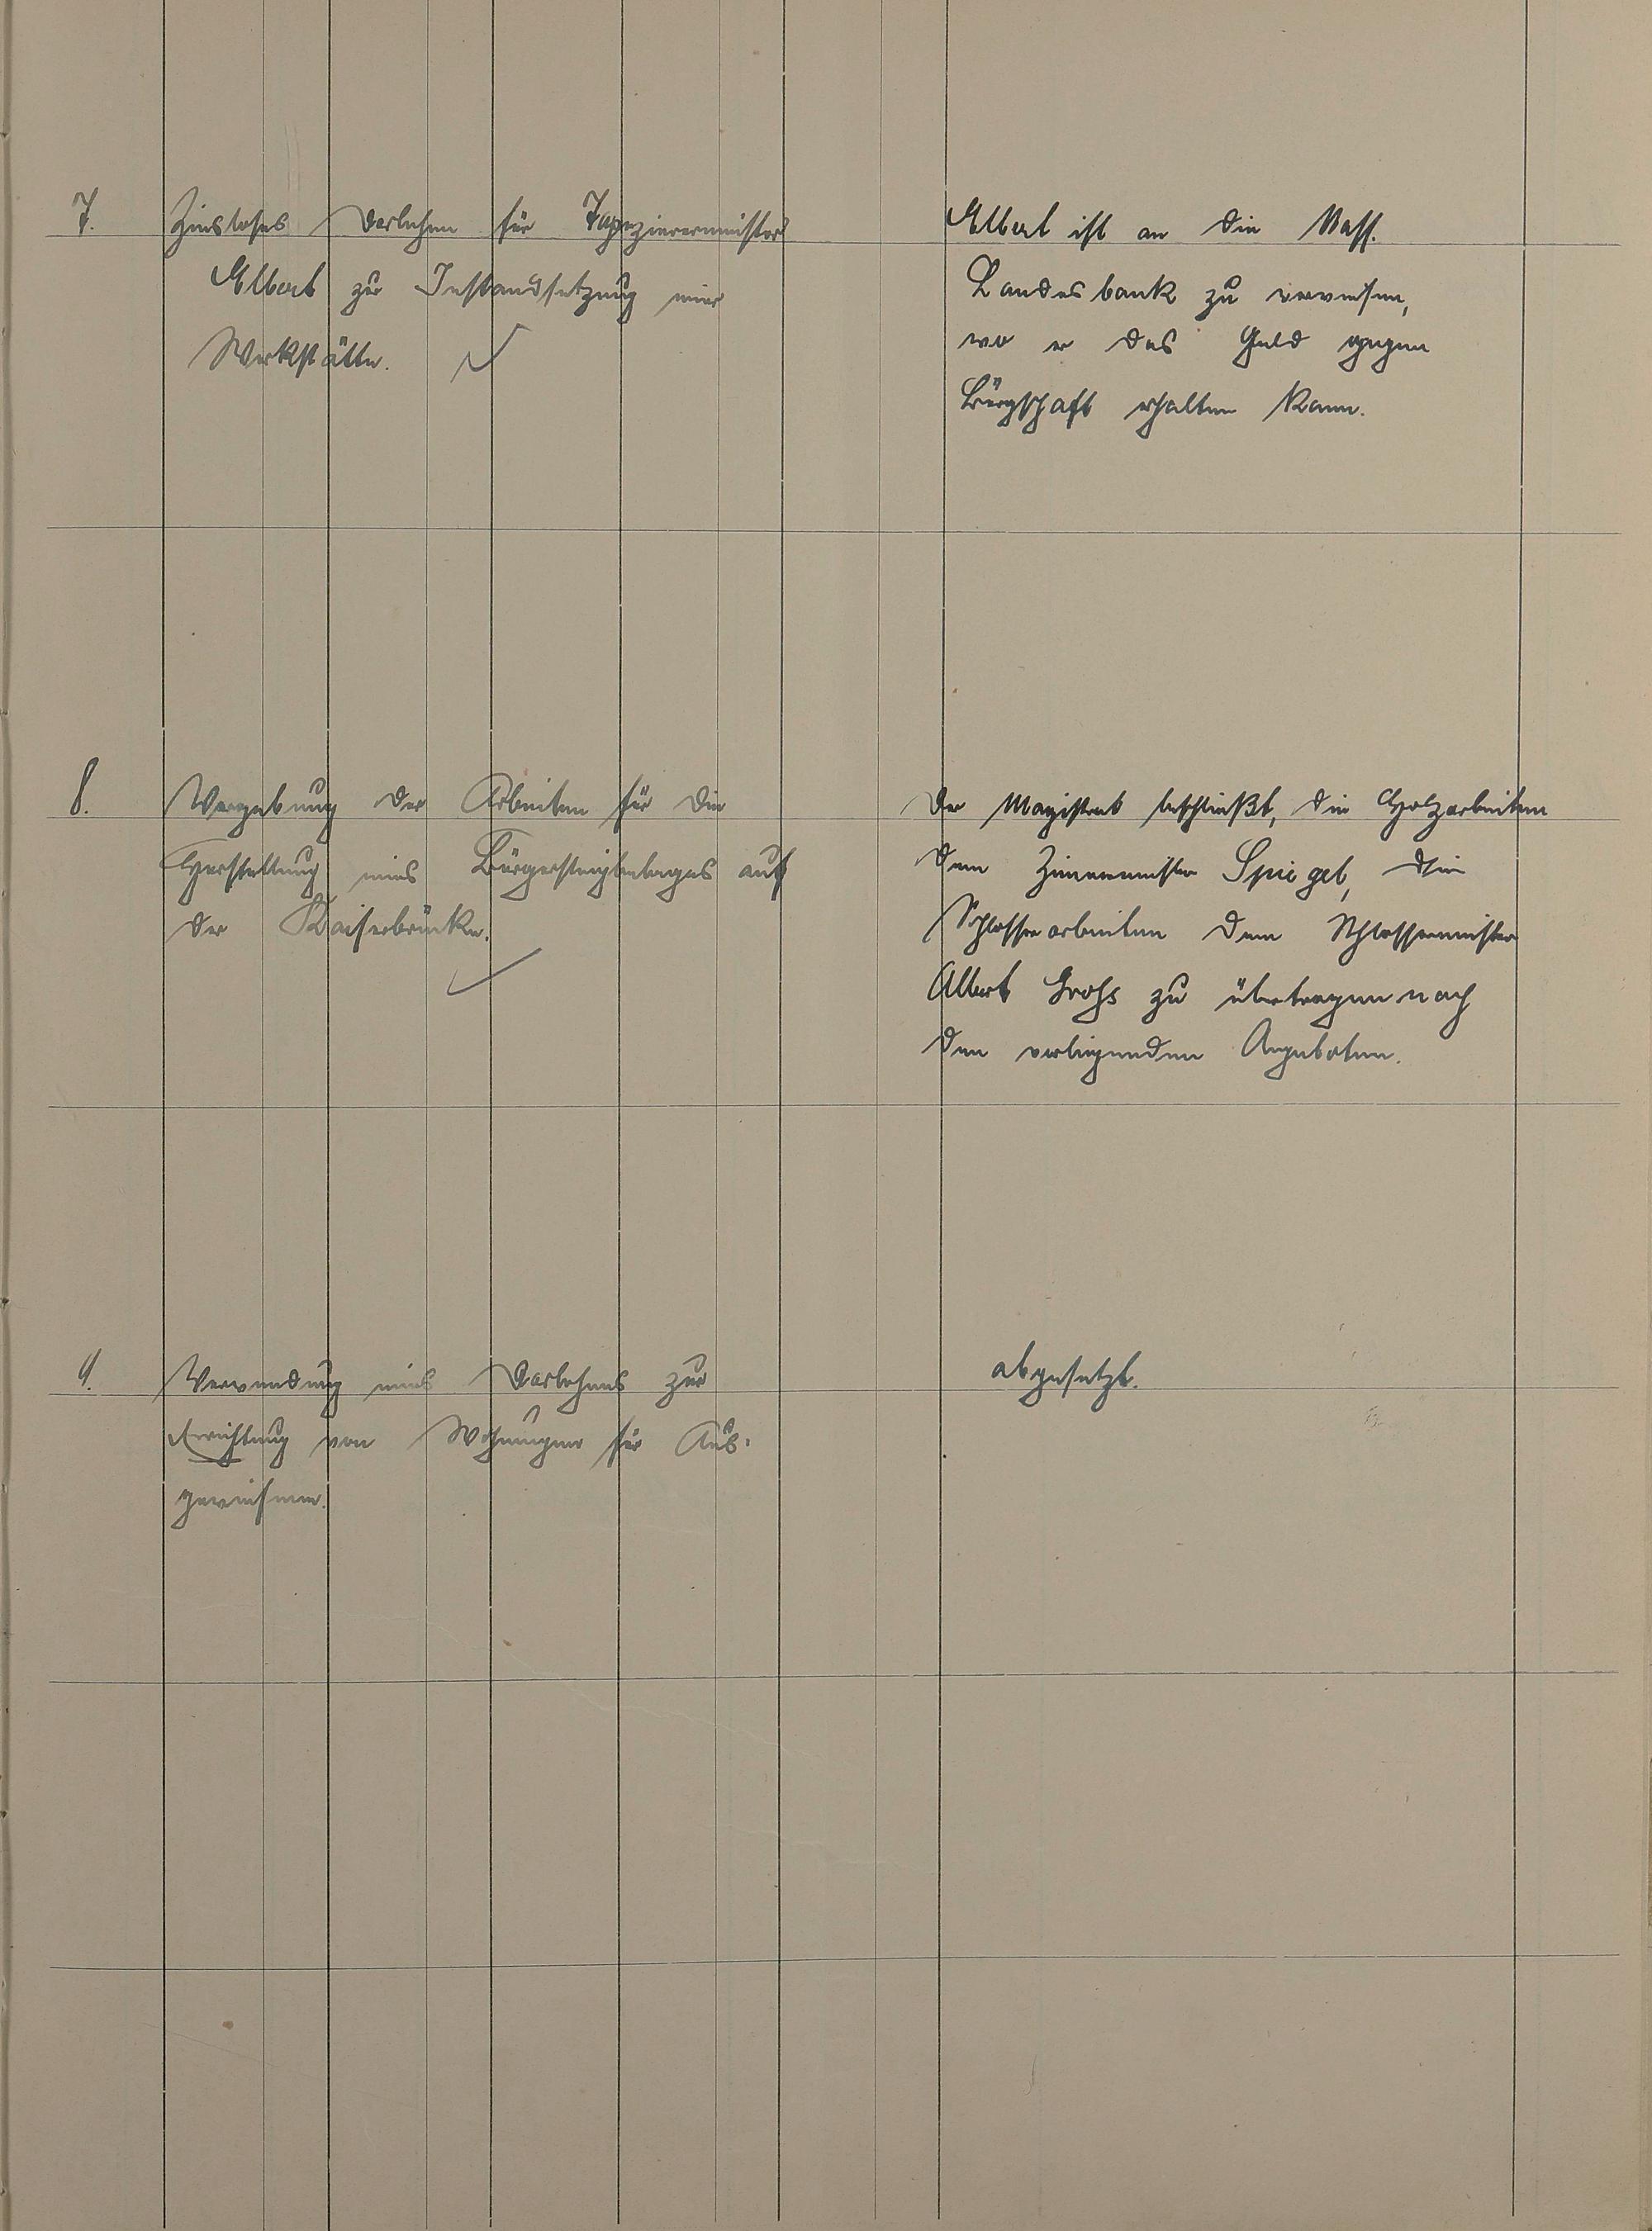 7.
Zinsloses Darlehen für Tapezierermeister
Elbert zur Instandsetzung einer
Werkstätte.
Elbert ist an die Nass.
Landesbank zu verweisen,
wo er das Geld gegen
Bürgschaft erhalten kann.
8.
Vergebung der Arbeiten für die
Herstellung eines Bürgersteigbelages auf
der Kaiserbrücke.
Der Magistrat beschließt, die Holzarbeiten
dem Zimmermeister Spiegel, die
Schlosserarbeiten dem Schlossermeister
Albert Groß zu übertragen nach
den vorliegenden Angeboten.
9.
Verwendung eines Darlehens zur
Errichtung von Wohnungen für Aus-
gewiesene.
abgesetzt.